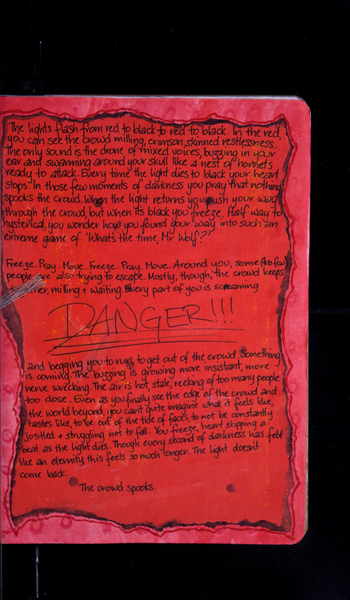 The lights flash from red to black to red to black. In the red,
you can see the crowd milling, crimson stained restlessness.
The only sound is the drone of mixed voices, buzzing in your
ear and swarming around your skull like a nest of hornets
ready to attack. Every time the light dies to black your heart
stops. In those few moments of darkness you pray that nothing
spooks the crowd. When the light returns you push your way
through the crowd, but when its black you freeze. Half way to
hysterical, you wonder how you found your way into such an
extreme game of 'Whats the time, Mr Wolf?'
Freeze. Pray. Move. Freeze. Pray. Move. Around you, some few
people are also trying to escape. Mostly, though, the crowd keeps
milling + waiting. Every part of you is screaming
DANGER!!!
and begging you to run, to get out of the crowd. Something
is coming. The buzzing is growing more insistent, more
nerve wrecking. The air is hot, stale, reeking of too many people
too close. Even as you finally see the edge of the crowd and
the world beyond, you can't quite imagine what it feels like,
tastes like, to be out of the tide of faces, to not be constantly
jostled + struggling not to fall. You freeze, heart skipping a
beat as the light dies. Though every second of darkness has felt
like an eternity, this feels so much longer. The light doesn't
come back.
The crowd spooks.